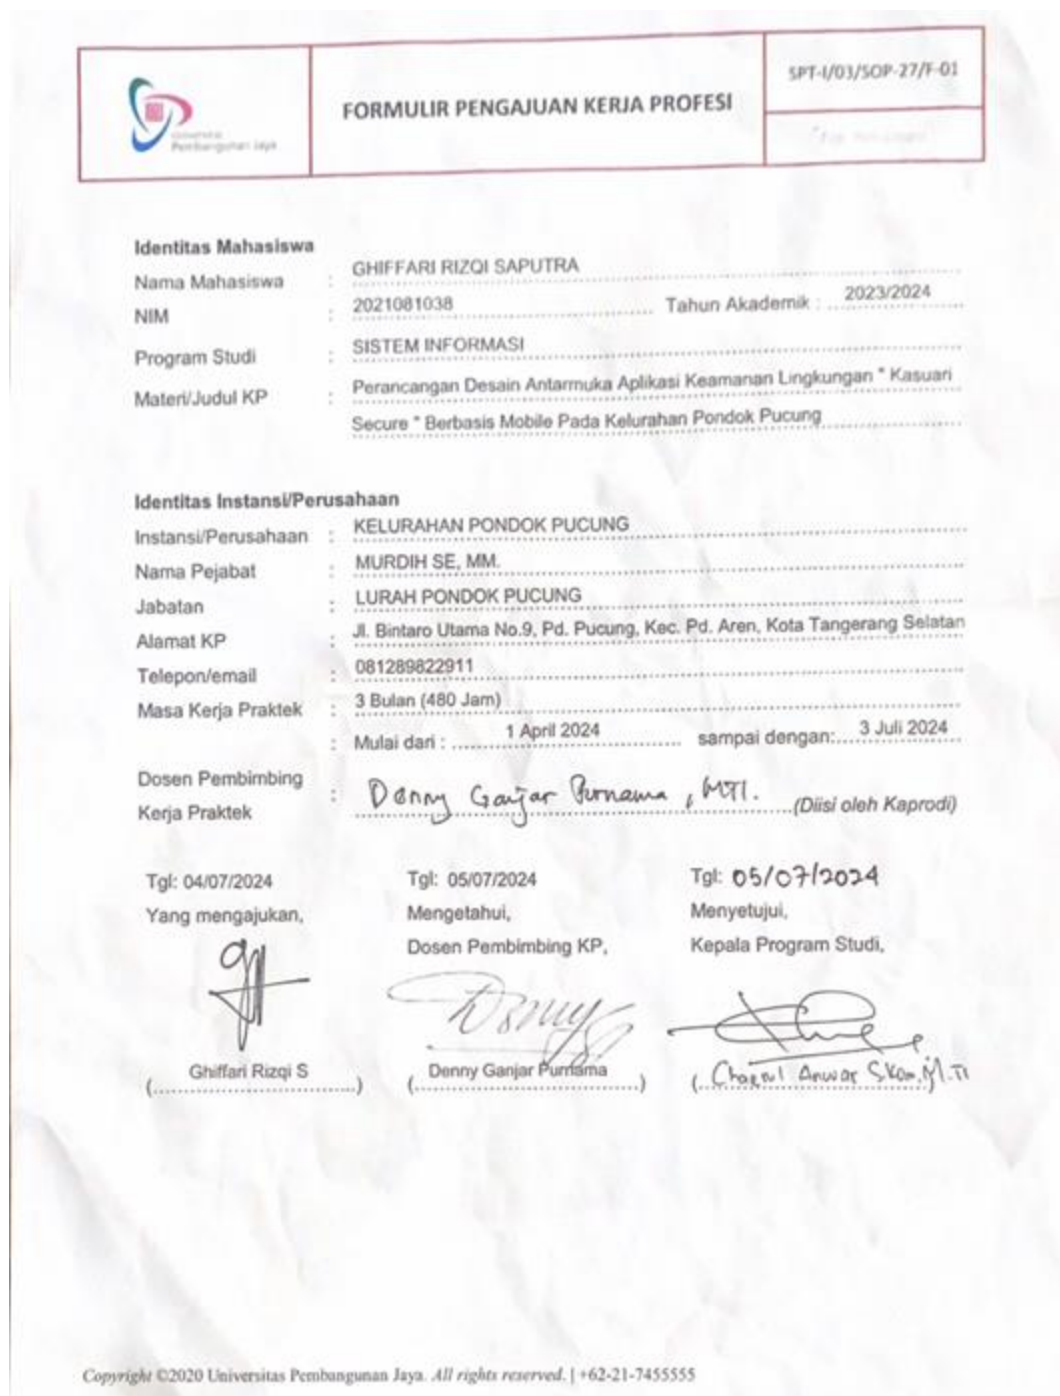 Universitas
Pembangunan Jaya
FORMULIR PENGAJUAN KERJA PROFESI
SPT-I/03/SOP-27/F-01
Identitas Mahasiswa
Nama Mahasiswa : GHIFFARI RIZQI SAPUTRA
NIM : 2021081038 Tahun Akademik : 2023/2024
Program Studi : SISTEM INFORMASI
Materi/Judul KP : Perancangan Desain Antarmuka Aplikasi Keamanan Lingkungan " Kasuari
Secure " Berbasis Mobile Pada Kelurahan Pondok Pucung
Identitas Instansi/Perusahaan
Instansi/Perusahaan : KELURAHAN PONDOK PUCUNG
Nama Pejabat : MURDIH SE, MM.
Jabatan : LURAH PONDOK PUCUNG
Alamat KP : Jl. Bintaro Utama No.9, Pd. Pucung, Kec. Pd. Aren, Kota Tangerang Selatan
Telepon/email : 081289822911
Masa Kerja Praktek : 3 Bulan (480 Jam)
: Mulai dari : 1 April 2024 sampai dengan: 3 Juli 2024
Dosen Pembimbing
Kerja Praktek : Denny Ganjar Purnama, MTI. (Diisi oleh Kaprodi)
Tgl: 04/07/2024 Tgl: 05/07/2024 Tgl: 05/07/2024
Yang mengajukan, Mengetahui, Menyetujui,
Dosen Pembimbing KP, Kepala Program Studi,
Denny
(Ghiffari Rizqi S) (Denny Ganjar Purnama) (Chaerul Anwar S.Kom, M.TI
Copyright ©2020 Universitas Pembangunan Jaya. All rights reserved. | +62-21-7455555